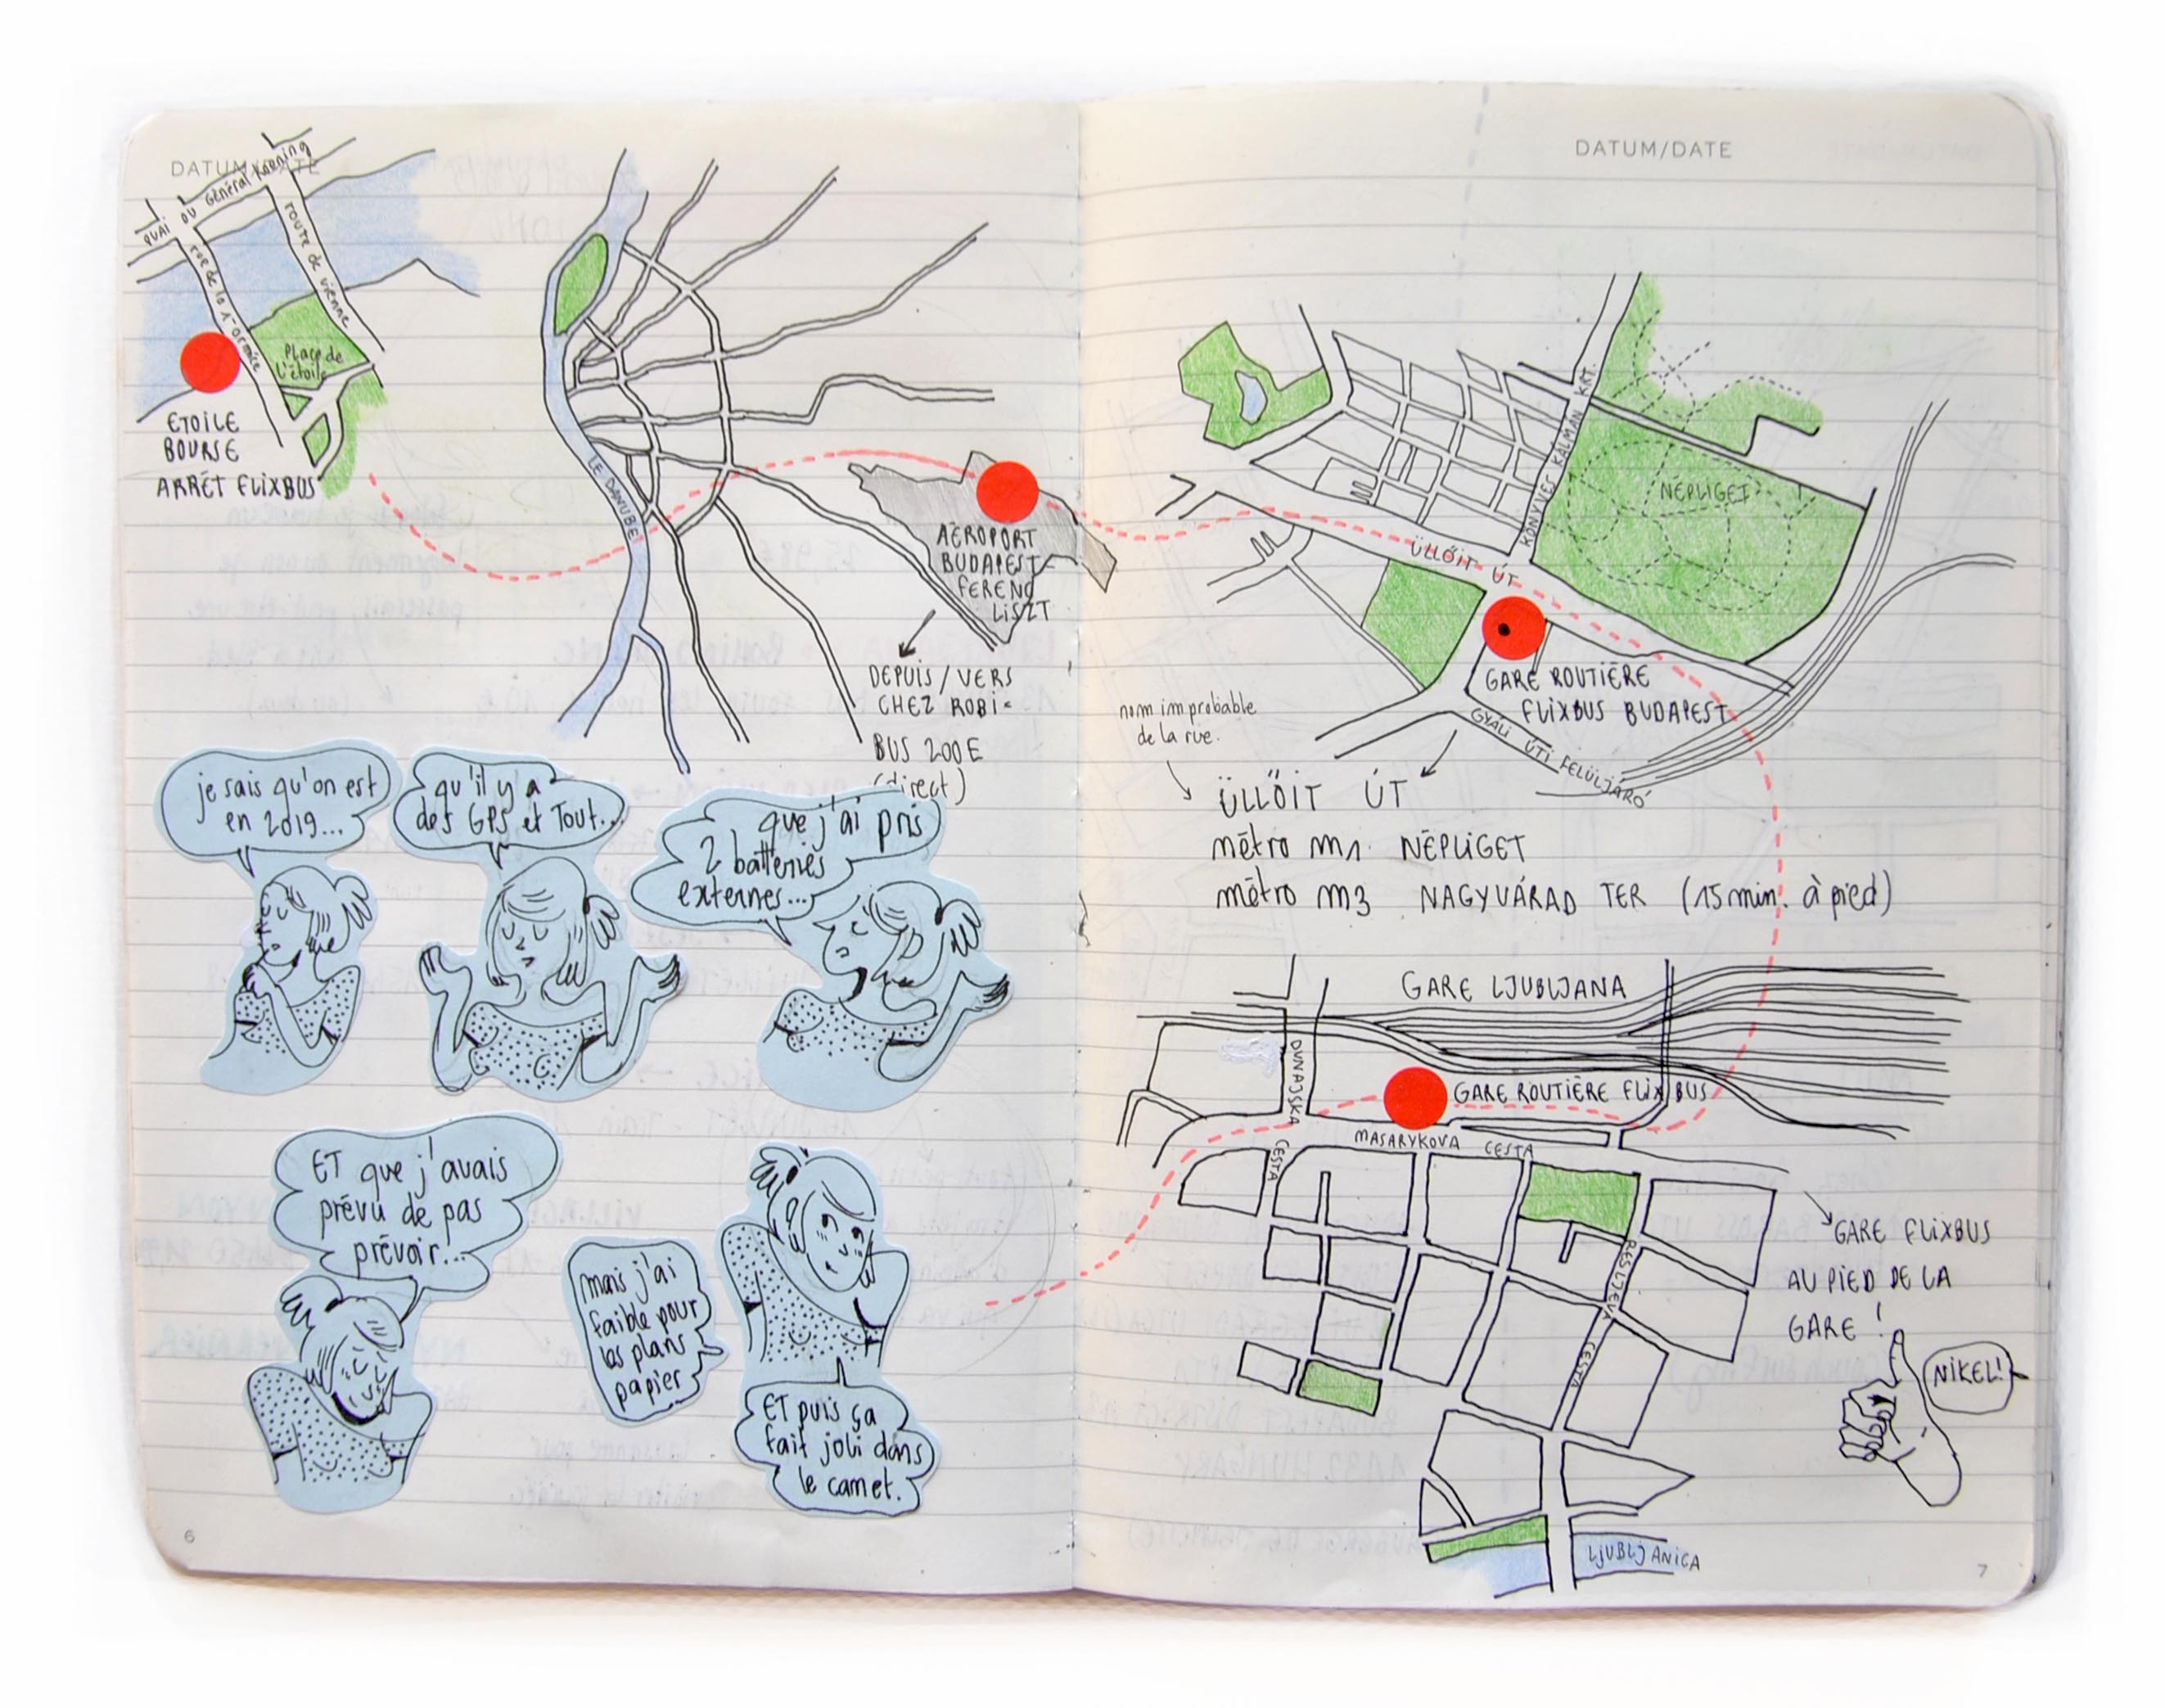 DATUM/DATE
QUAI DU Général Koening
route de vienne
rue de la 1ère armée
Place de
l'étoile
ETOILE
BOURSE
ARRÊT FLiXBUS
LE DANUBE
AÉROPORT
BUDAPEST
FERENC
LISZT
DEPUIS / VERS
CHEZ ROBI
BUS 200E
(direct)
je sais qu'on est
en 2019...
qu'il y a
des GPS et Tout...
que j'ai pris
2 batteries
externes...
ET que j'avais
prévu de pas
prévoir...
mais j'ai
faible pour
les plans
papier
ET puis ça
fait joli dans
le carnet.
6
DATUM/DATE
KÖNYVES KÁLMÁN KRT.
NÉPLIGET
ÜLLŐIT ÚT
GARE ROUTIÈRE
FLIXBUS BUDAPEST
GYÁLI ÚTI FELÜLJÁRÓ
nom improbable
de la rue.
ÜLLŐIT ÚT
métro m1 NÉPLIGET
métro m3 NAGYVÁRAD TER (15 min. à pied)
GARE LJUBLJANA
DUNAJSKA CESTA
GARE ROUTIÈRE FLIXBUS
MASARYKOVA CESTA
RESLJEVA CESTA
GARE FLIXBUS
AU PIED DE LA
GARE !
NIKEL!
LJUBLJANICA
7